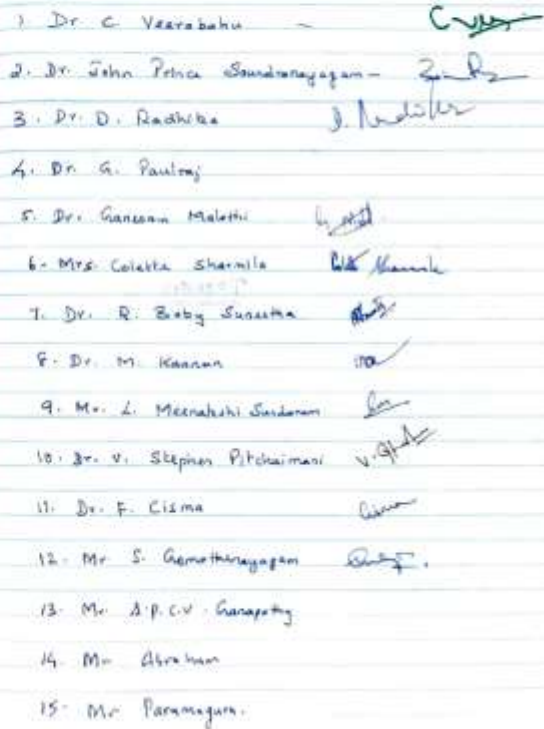 1. Dr C Veerabahu -
2. Dr. John Prince Soundranayagam -
3. Dr. D. Radhika D. Radhika
4. Dr. G. Paulraj
5. Dr. Ganesan Malathi
6. Mrs. Coletta Sharmila
7. Dr. R. Baby Suneetha
8. Dr. M. Kannan
9. Mr. L. Meenakshi Sundaram
10. Dr. V. Stephen Pitchaimani
11. Dr. F. Cisma Cisma
12. Mr S.
13. Mr. S.P.C.V. Ganapathy
14. Mr Abraham
15. Mr Paramaguru.